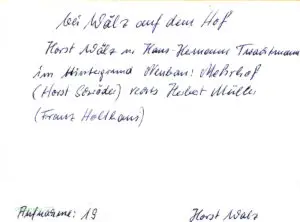 bei Wälz auf dem Hof
Horst Wälz u. Hans-Hermann Trautmann
im Hintergrund Neubau: Mohrhof
(Horst Schröder) rechts Herbert Müller
(Franz Holthaus)
Aufnahme: 19 Horst Wälz